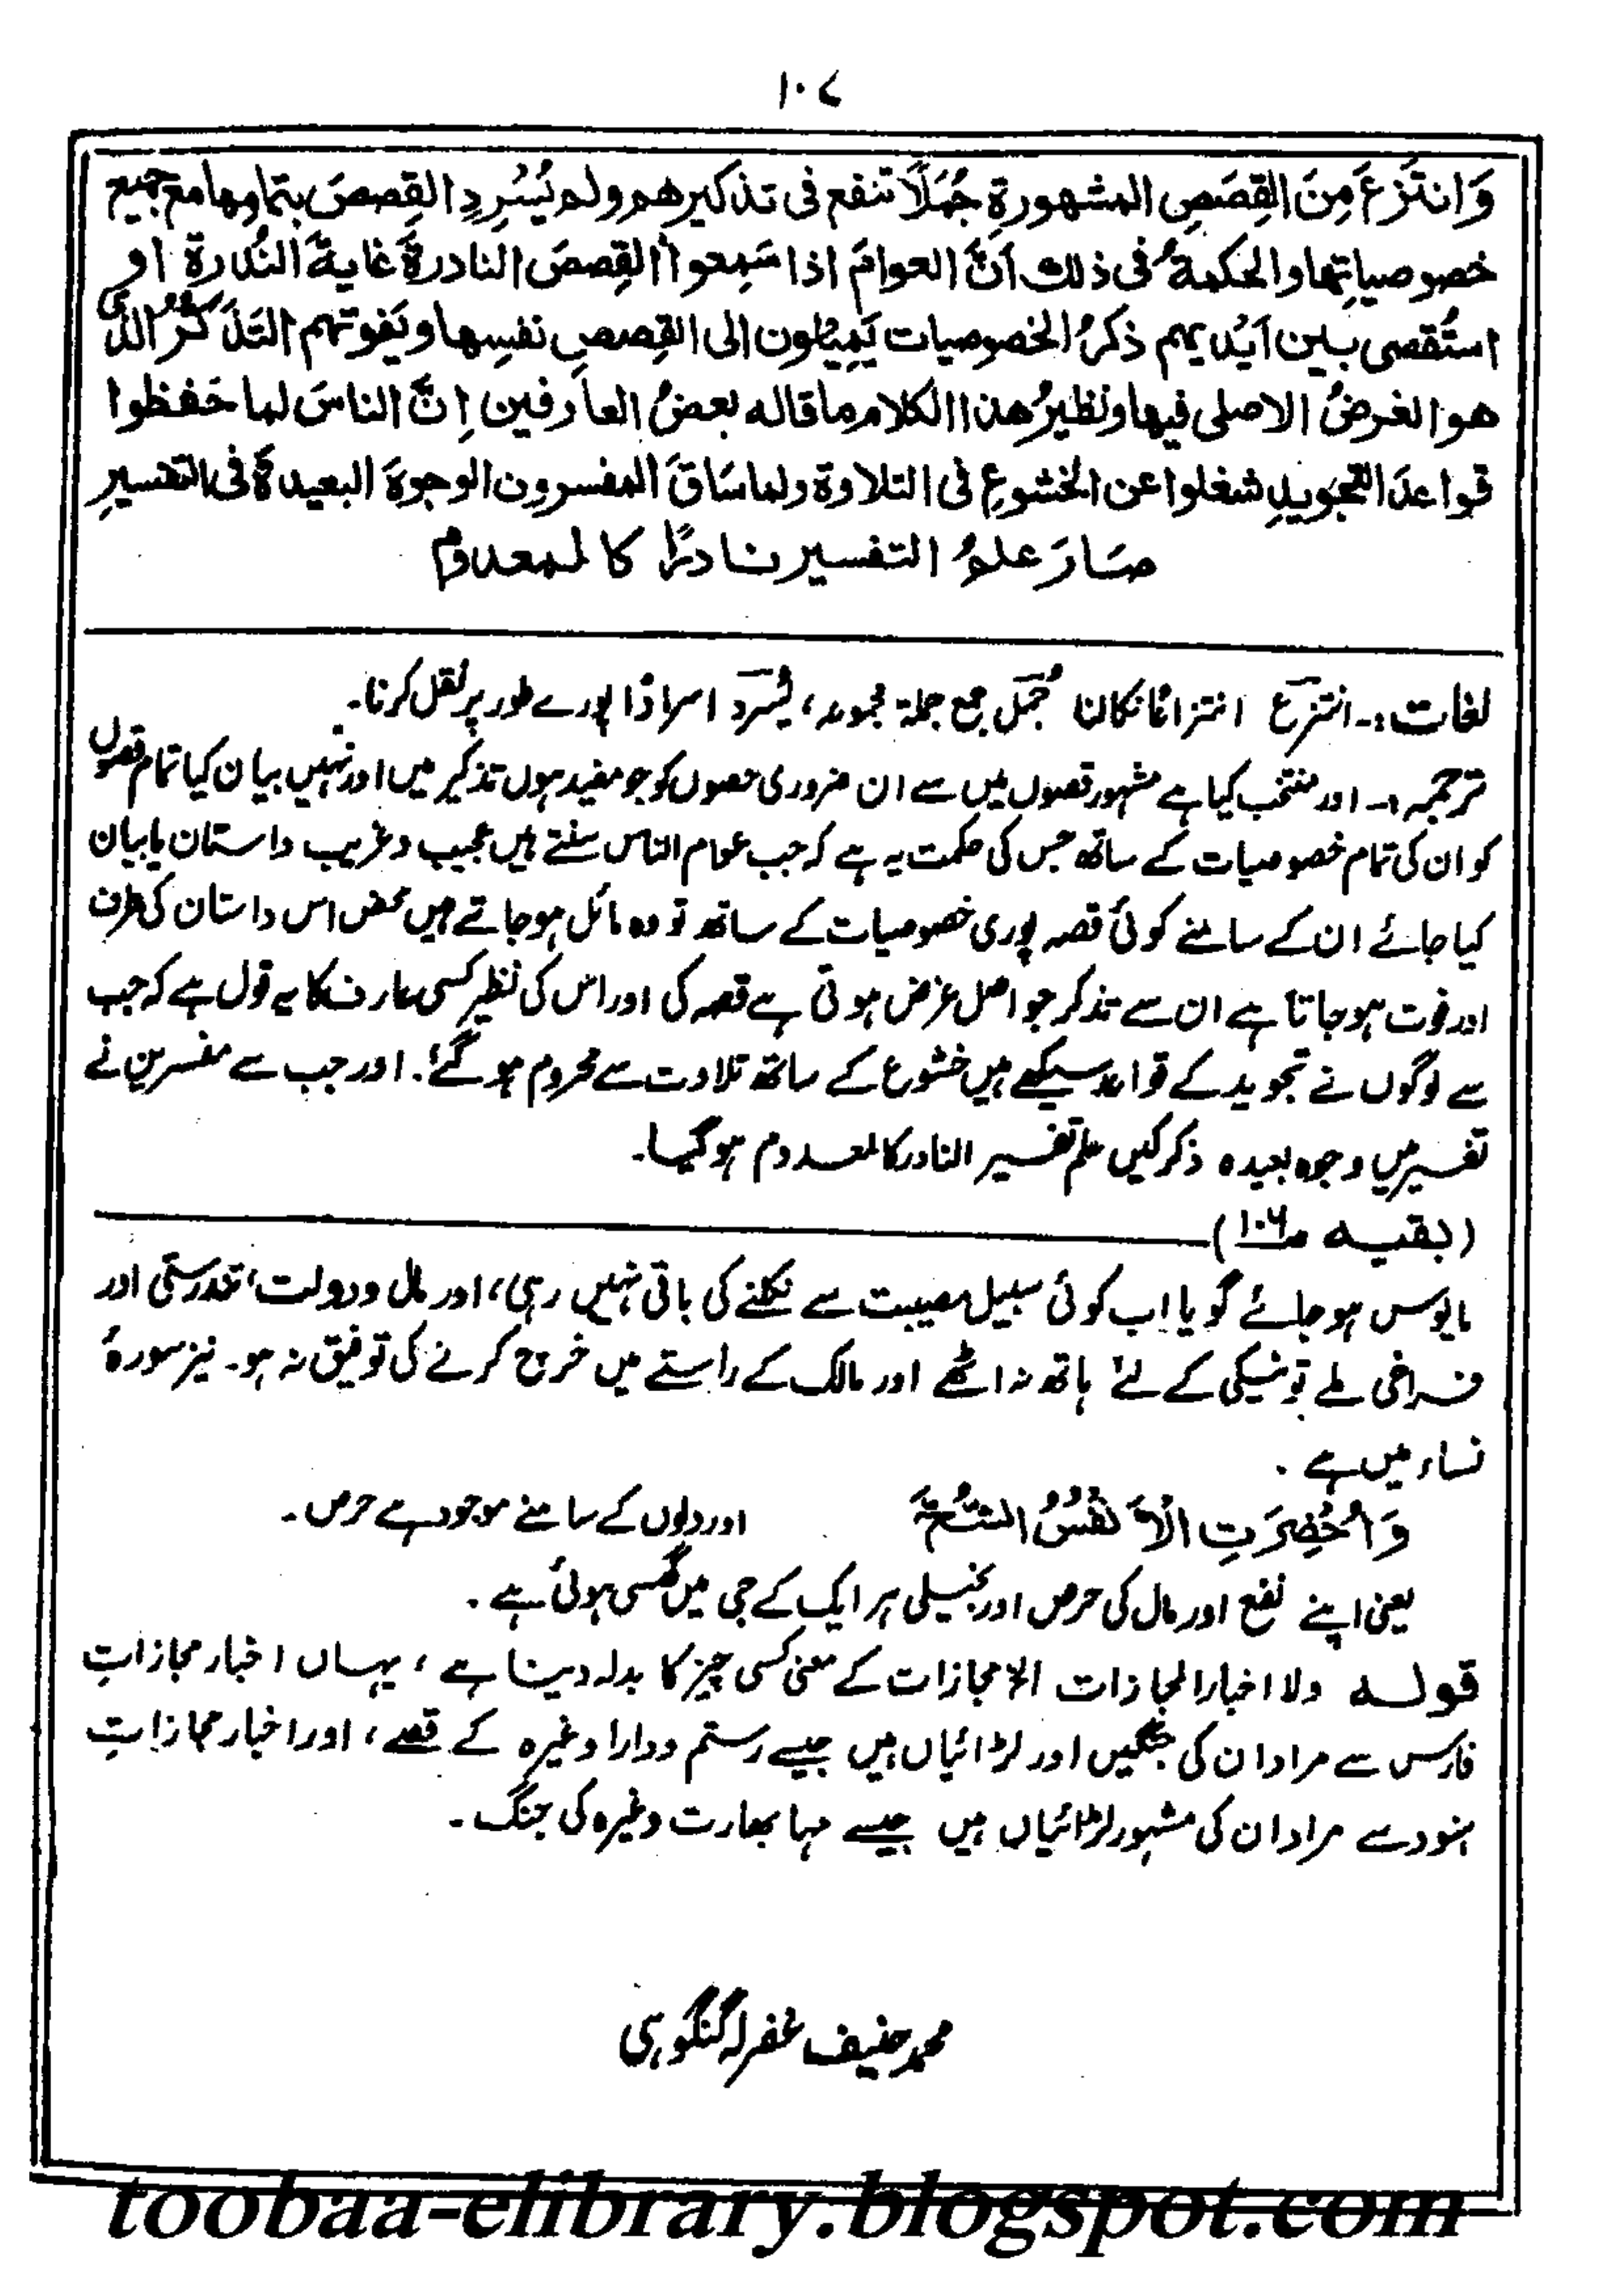 ۱۰۷
وَانتَزَعَ مِنَ القِصَصِ المشهورةِ جُمَلاً تنفع فی تذکیرهم ولم یُسْرِدِ القِصصَ بتمامها مع جمیع
خصوصیاتِها والحکمةُ فی ذلك اَنَّ العوامَ اذا سَمِعوا القِصصَ النادرةَ غایةَ النُدرة او
استُقصی بین اَیْدیهم ذکرُ الخصوصیات یَمِیْلون الی القِصصِ نفسِها ویَفوتهم التَذَکُّرُ الذی
هو الغرضُ الاصلی فیها ونظیرُ هذا الکلام ما قاله بعضُ العارفین اِنَّ الناسَ لما حَفِظوا
قواعدَ التجویدِ شغلوا عن الخشوعِ فی التلاوة ولما سَاقَ المفسرون الوجوهَ البعیدةَ فی التفسیرِ
صَارَ علمُ التفسیر نادرًا کالمعدوم
لغات :۔ انتزعَ انتزاعًا نکالنا جُمَل جمع جملة مجموعہ، یُسْرِد اسرادًا پورے طور پر نقل کرنا۔
ترجمہ :۔ اور منتخب کیا ہے مشہور قصوں میں سے ان ضروری حصوں کو جو مفید ہوں تذکیر میں اور نہیں بیان کیا تمام قصوں
کو ان کی تمام خصوصیات کے ساتھ جس کی حکمت یہ ہے کہ جب عوام الناس سنتے ہیں عجیب و غریب داستان یا بیان
کیا جائے ان کے سامنے کوئی قصہ پوری خصوصیات کے ساتھ تو وہ مائل ہو جاتے ہیں محض اس داستان کی طرف
اور فوت ہو جاتا ہے ان سے تذکر جو اصل غرض ہوتی ہے قصہ کی اور اس کی نظیر کسی عارف کا یہ قول ہے کہ جب
سے لوگوں نے تجوید کے قواعد سیکھے ہیں خشوع کے ساتھ تلاوت سے محروم ہو گئے۔ اور جب سے مفسرین نے
تفسیر میں وجوہ بعیدہ ذکر کیں علم تفسیر النادر کالمعدوم ہو گیا۔
(بقیہ صـ۱۰۶)
مایوس ہو جائے گویا اب کوئی سبیل مصیبت سے نکلنے کی باقی نہیں رہی، اور مال و دولت، تندرستی اور
فراخی ملے تو نیکی کے لئے ہاتھ نہ اٹھے اور مالک کے راستے میں خرچ کرنے کی توفیق نہ ہو۔ نیز سورۂ
نساء میں ہے۔
وَاُحْضِرَتِ الْاَنْفُسُ الشُّحَّ اور دلوں کے سامنے موجود ہے حرص۔
یعنی اپنے نفع اور مال کی حرص اور بخیلی ہر ایک کے جی میں گھسی ہوئی ہے۔
قولہ ولا اخبار المجازات الخ مجازات کے معنی کسی چیز کا بدلہ دینا ہے، یہاں اخبار مجازاتِ
فارس سے مراد ان کی جنگیں اور لڑائیاں ہیں جیسے رستم و دارا وغیرہ کے قصے، اور اخبار مجازاتِ
ہنود سے مراد ان کی مشہور لڑائیاں ہیں جیسے مہا بھارت وغیرہ کی جنگ۔
محمد حنیف غفرلہ گنگوہی
toobaa-elibrary.blogspot.com